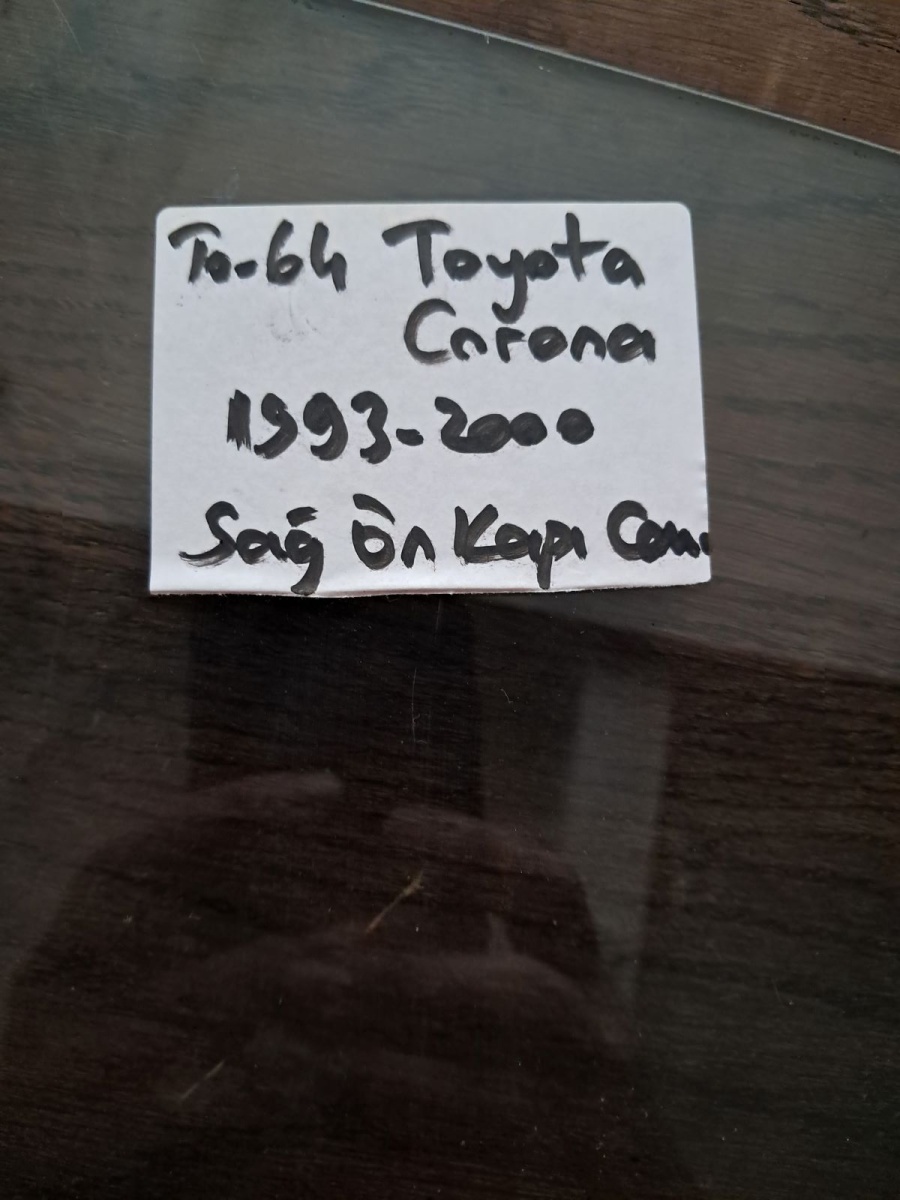 To-64 Toyota
Corona
1993-2000
Sağ Ön Kapı Camı